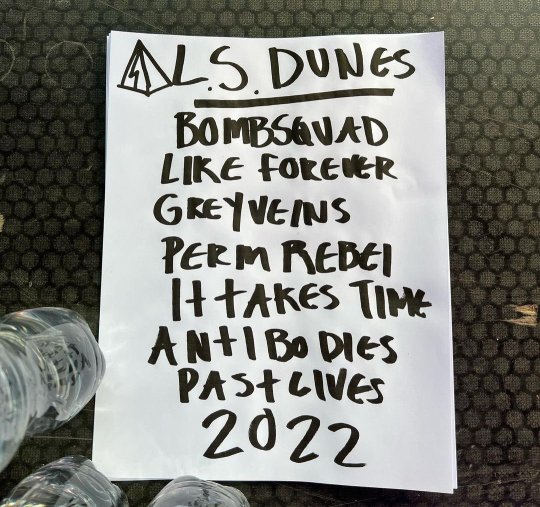 L.S. DUNES
BOMBSQUAD
LIKE FOREVER
GREYVEINS
PERM REBEL
It tAKES TIME
ANtIBODIES
PAStLIVES
2022